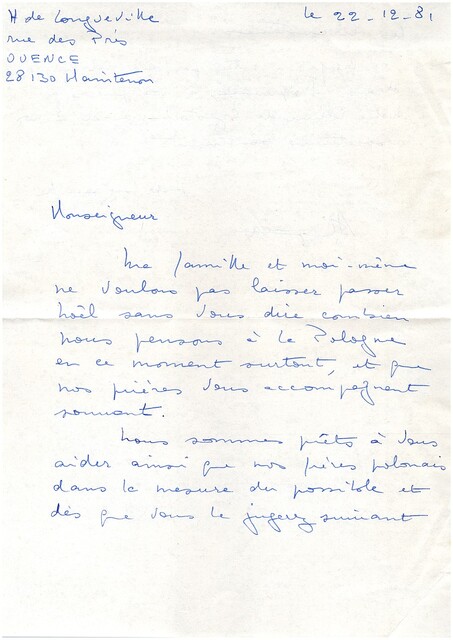 H de Longueville
le 22-12-81
rue des Prés
OUENCE
28130 Maintenon
Monseigneur
Ma famille et moi-même
ne voulons pas laisser passer
Noël sans vous dire combien
nous pensons à la Pologne
en ce moment surtout, et que
nos prières vous accompagnent
souvent.
Nous sommes prêts à vous
aider ainsi que nos frères polonais
dans la mesure du possible et
dès que vous le jugerez suivant